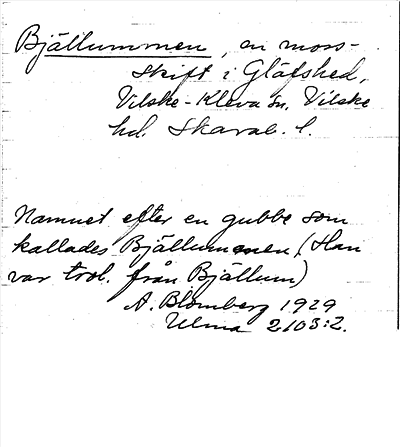 Bjällummen, en moss-
skift i Gläfshed,
Vilske-Kleva sn, Vilske
hd. Skarab. l.
Namnet efter en gubbe som
kallades Bjällummen, (Han
var trol. från Bjällum)
A. Blomberg 1929
Ulma 2103:2.